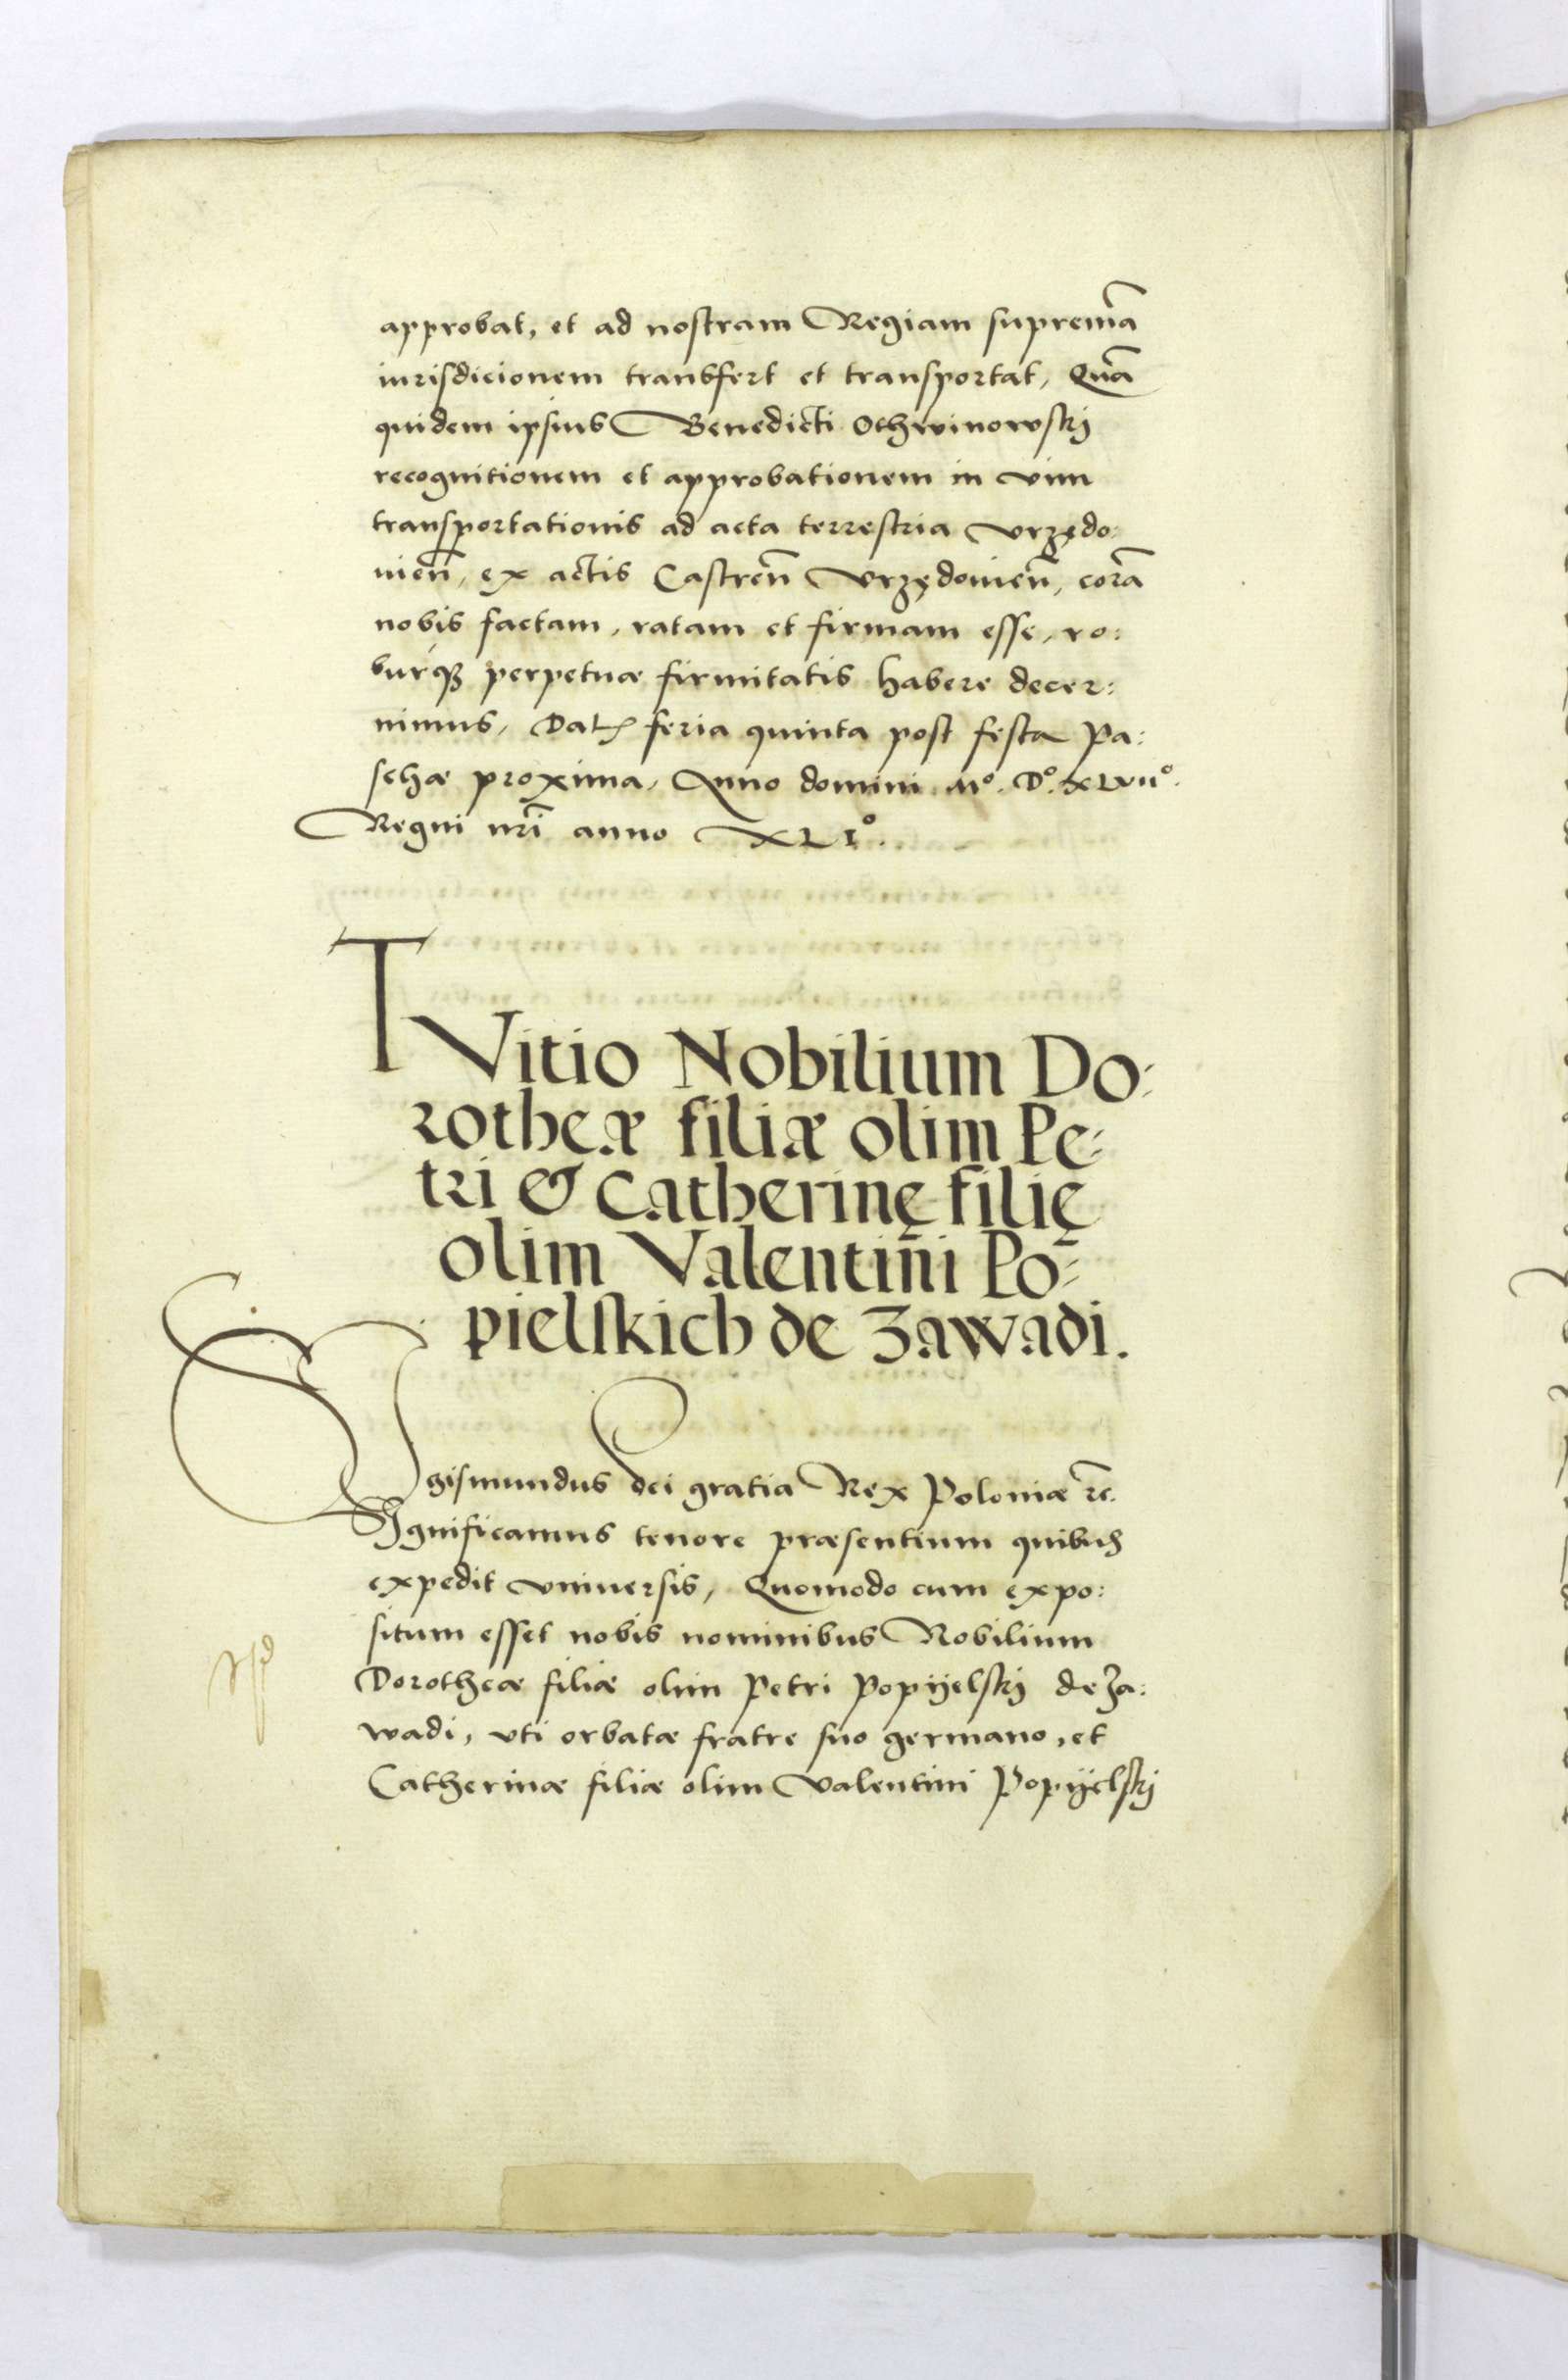 approbat, et ad nostram Regiam supremā
iurisdicionem transfert et transportat, Quā
quidem ipsius Benedicti Othwinowskij
recognitionem et approbationem in vim
transportationis ad acta terrestria Vrzędo:
uieñ, ex actis Castreñ Vrzędouieñ, corā
nobis factam, ratam et firmam esse, ro:
burq₃ perpetuæ firmitatis habere decer:
nimus, Dat feria quinta post festa Pa:
schæ proxima, Anno domini M°. D°. XLVII°.
Regni nr̄i anno XLI°.
TVitio Nobilium Do:
rotheæ filiæ olim Pe:
tri & Catherinę filię
olim Valentini Po:
pielskich de Zawadi.
Sigismundus dei gratia Rex Poloniæ &c.
Significamus tenore præsentium quibus
expedit vniuersis, Quomodo cum expo:
situm esset nobis nominibus Nobilium
Dorotheæ filiæ olim Petri Popijelskij de Za:
wadi, vti orbatæ fratre suo germano, et
Catherinæ filiæ olim Valentini Popijelskij